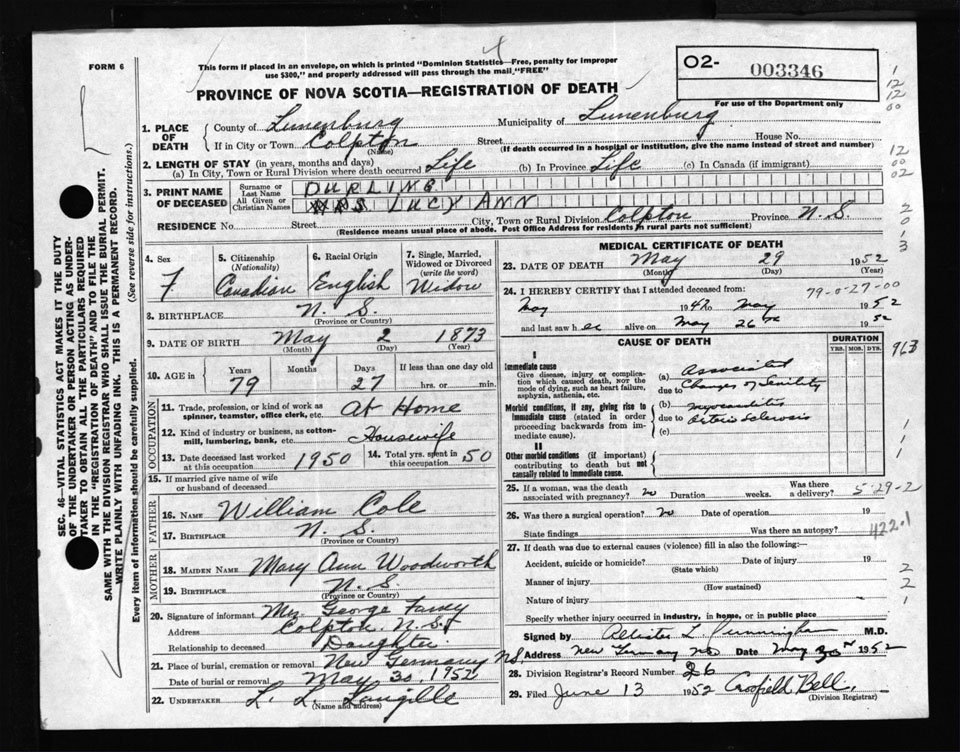 FORM 6
This form if placed in an envelope, on which is printed "Dominion Statistics—Free, penalty for improper
use $300," and properly addressed will pass through the mail,"FREE"
PROVINCE OF NOVA SCOTIA—REGISTRATION OF DEATH
O2- 003346
For use of the Department only
1. PLACE OF DEATH
County of Lunenburg Municipality of Lunenburg
If in City or Town Colpton Street House No.
(Name) (If death occurred in a hospital or institution, give the name instead of street and number)
2. LENGTH OF STAY (in years, months and days)
(a) In City, Town or Rural Division where death occurred Life (b) In Province Life (c) In Canada (if immigrant)
3. PRINT NAME OF DECEASED
Surname or Last Name DURLING
All Given or Christian Names LUCY ANN
RESIDENCE No. Street City, Town or Rural Division Colpton Province N.S.
(Residence means usual place of abode. Post Office Address for residents in rural parts not sufficient)
4. Sex F
5. Citizenship (Nationality) Canadian
6. Racial Origin English
7. Single, Married, Widowed or Divorced (write the word) Widow
8. BIRTHPLACE N.S.
(Province or Country)
9. DATE OF BIRTH May 2 1873
(Month) (Day) (Year)
10. AGE in Years Months Days If less than one day old
79 27 hrs. or min.
OCCUPATION
11. Trade, profession, or kind of work as spinner, teamster, office clerk, etc. At Home
12. Kind of industry or business, as cotton-mill, lumbering, bank, etc. Housewife
13. Date deceased last worked at this occupation 1950
14. Total yrs. spent in this occupation 50
15. If married give name of wife or husband of deceased
FATHER
16. NAME William Cole
17. BIRTHPLACE N.S.
(Province or Country)
MOTHER
18. MAIDEN NAME Mary Ann Woodworth
19. BIRTHPLACE N.S.
(Province or Country)
20. Signature of informant Mrs George
Address Colpton N.S.
Relationship to deceased Daughter
21. Place of burial, cremation or removal New Germany N.S.
Date of burial or removal May 30, 1952
22. UNDERTAKER L. L. Langille
(Name and address)
MEDICAL CERTIFICATE OF DEATH
23. DATE OF DEATH May 29 1952
(Month) (Day) (Year)
24. I HEREBY CERTIFY that I attended deceased from: 79-0-27-00
May 194 to May 1952
and last saw her alive on May 26 1952
CAUSE OF DEATH
DURATION
YRS. MOS. DYS.
I
Immediate cause
Give disease, injury or complication which caused death, NOT the mode of dying, such as heart failure, asphyxia, asthenia, etc.
(a) Associated
due to Changes of Senility
Morbid conditions, if any, giving rise to immediate cause (stated in order proceeding backwards from immediate cause).
(b) Myocarditis
due to Arterio Sclerosis
(c)
II
Other morbid conditions (if important) contributing to death but not causally related to immediate cause.
25. If a woman, was the death associated with pregnancy? No Duration weeks. Was there a delivery? 5-29-2
26. Was there a surgical operation? No Date of operation 19
State findings Was there an autopsy? 422.1
27. If death was due to external causes (violence) fill in also the following:—
Accident, suicide or homicide? Date of injury 19
(State which)
Manner of injury
(How sustained)
Nature of injury
Specify whether injury occurred in industry, in home, or in public place
Signed by L. Cunningham M.D.
Address New Germany NS Date May 30 1952
28. Division Registrar's Record Number 26
29. Filed June 13 1952 Bell.
(Division Registrar)
963
SEC. 46—VITAL STATISTICS ACT MAKES IT THE DUTY
OF THE UNDERTAKER OR PERSON ACTING AS UNDER-
TAKER TO OBTAIN ALL THE PARTICULARS REQUIRED
IN THE "REGISTRATION OF DEATH" AND TO FILE THE
SAME WITH THE DIVISION REGISTRAR WHO SHALL ISSUE THE BURIAL PERMIT.
WRITE PLAINLY WITH UNFADING INK. THIS IS A PERMANENT RECORD.
Every item of information should be carefully supplied. (See reverse side for instructions.)